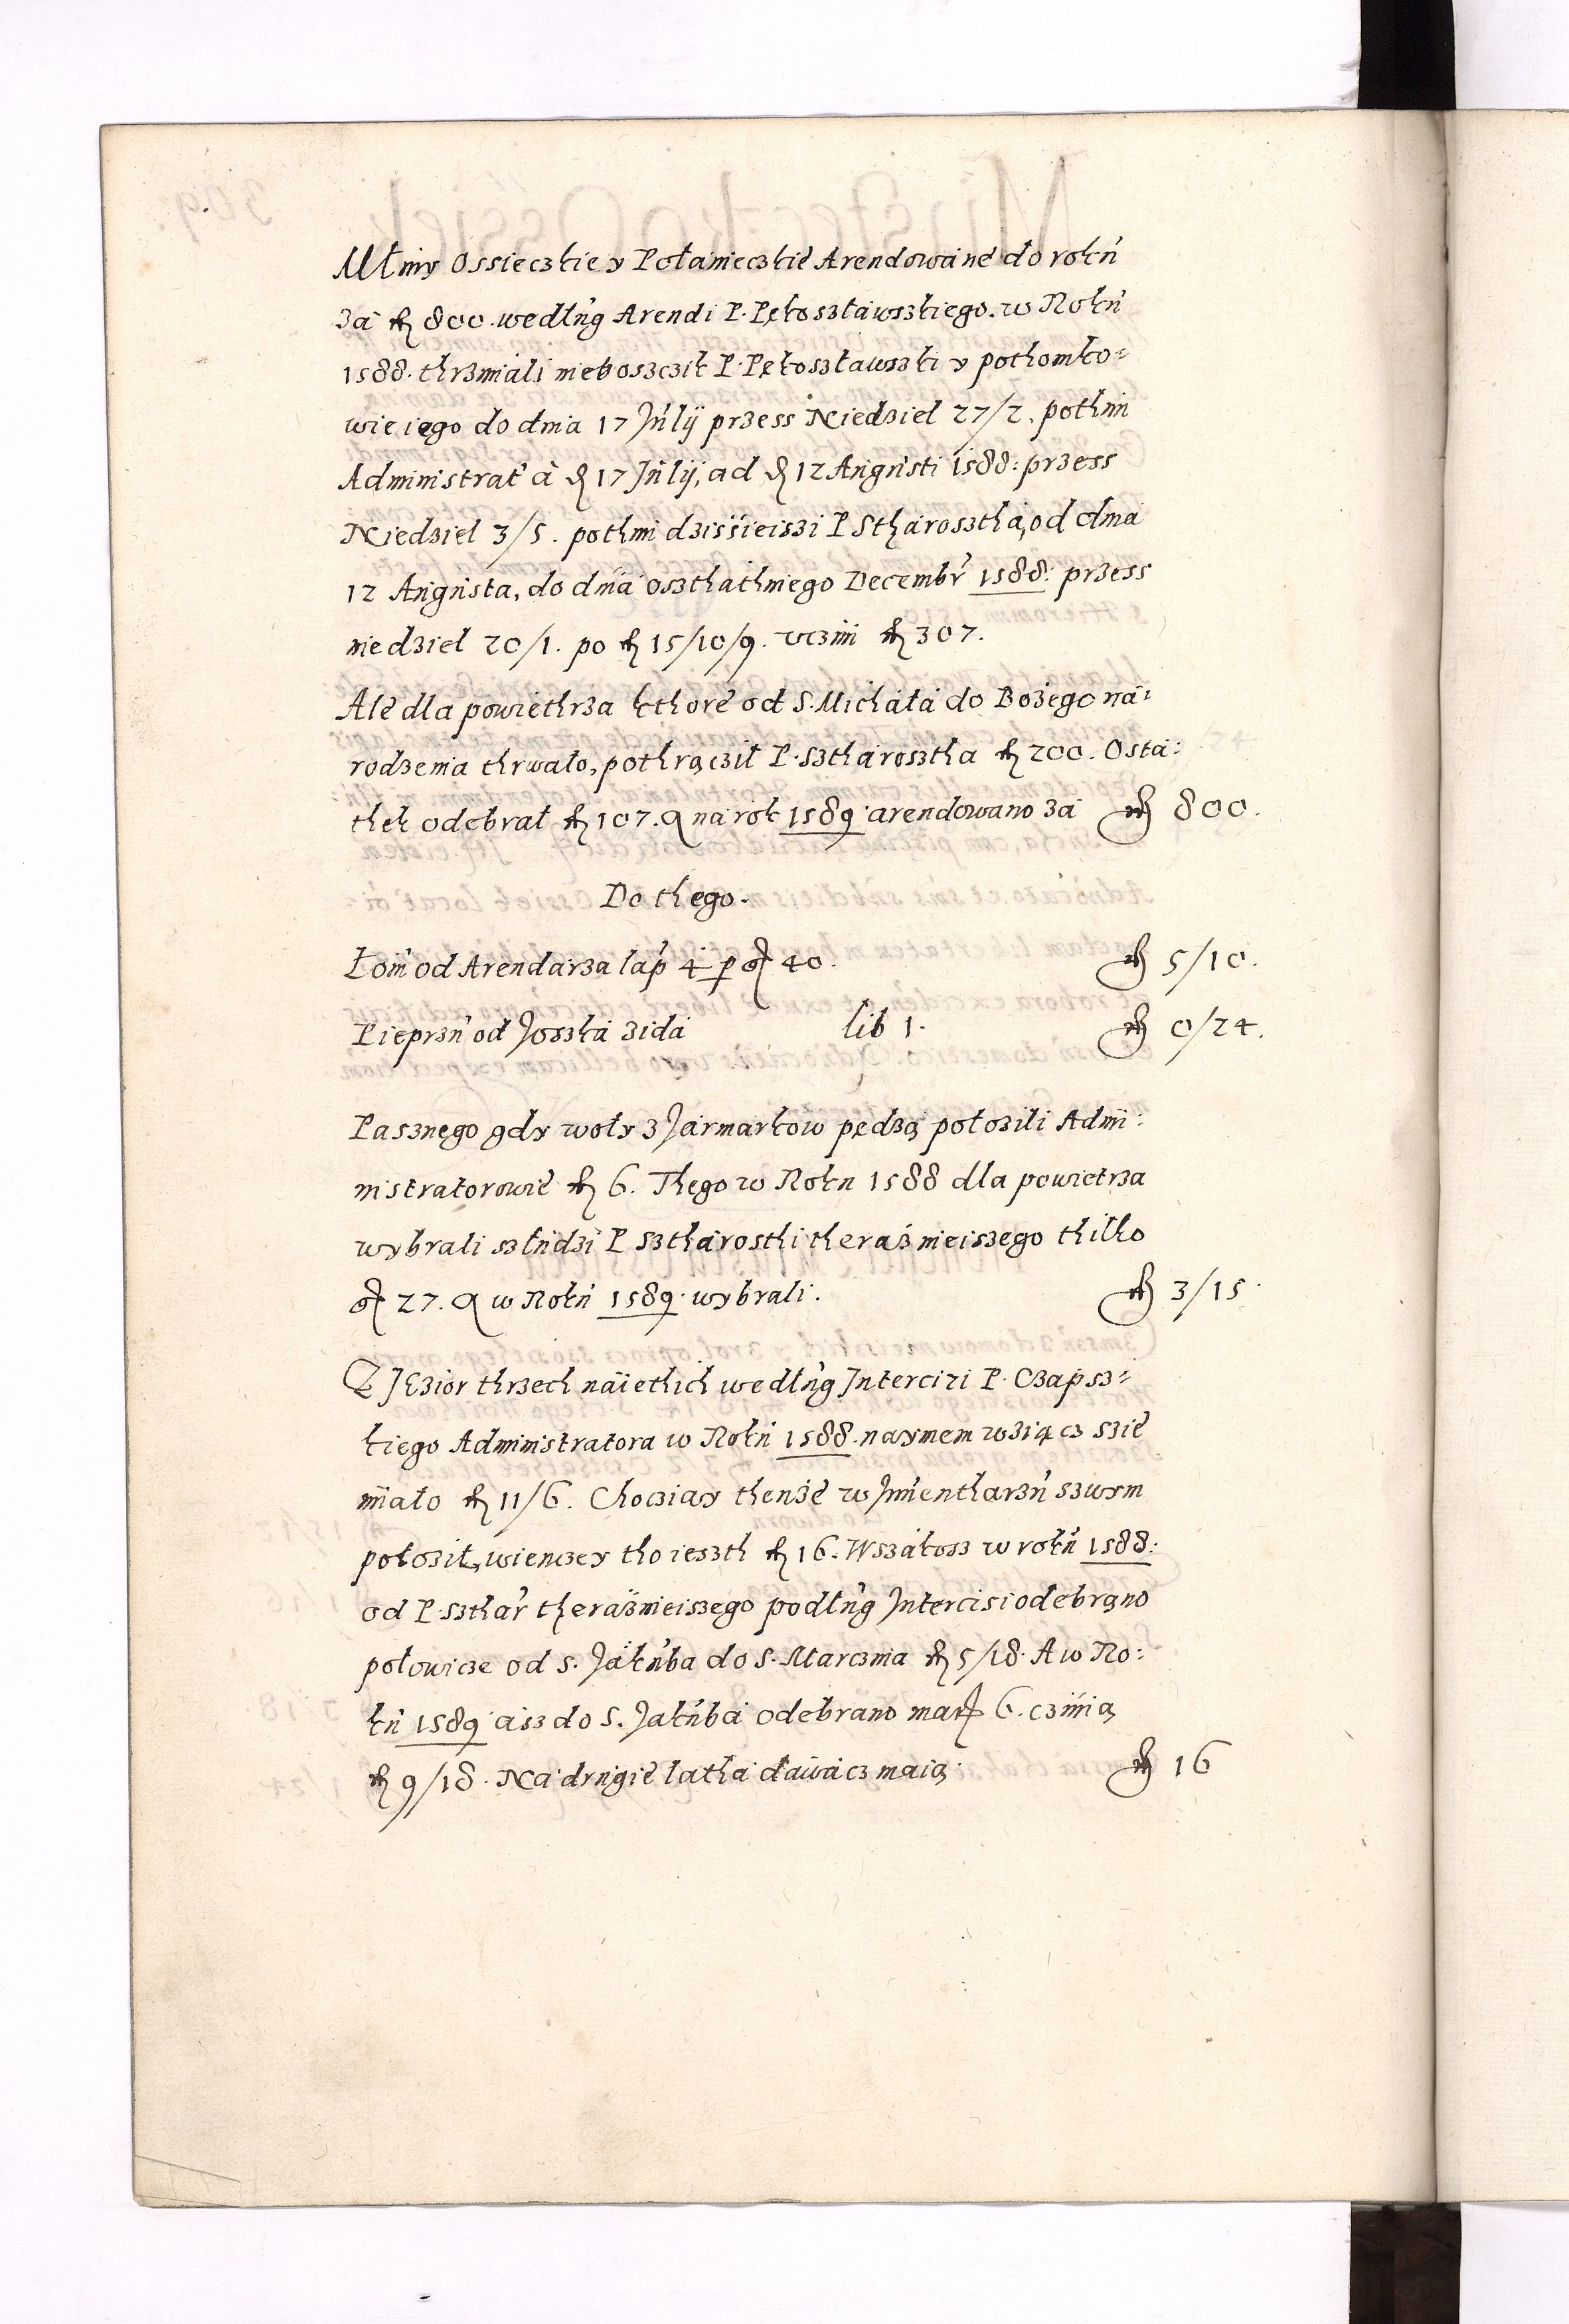 Młiny Ossieczkie y Połanieczkie Arendowane do rokú
Za fl 800. wedlúg Arendi P. Pękoszławszkiego. w Rokú
1588. thrzimali nieboszczik P. Pękoszławszki y pothomko=
wie iego do dnia 17 Júlÿ przess Niedziel 27/2. pothim
Administrat a d 17 Júlÿ, ad d 12 Augústi 1588: przess
Niedziel 3/5. pothim dzissieiszi P Stharosztha, od dnia
12 Augústa, do dnia oszthathniego Decembr 1588: przess
niedziel 20/1. po fl 15/10/9. uczini fl 307.
Ale dla powiethrza kthore od S. Michała do Bozego na=
rodzenia thrwało, pothrącził P. sztharosztha fl 200. Osta=
thek odebrał fl 107. A na rok 1589 arendowano za fl 800.
Do thego.
Łoiú od Arendarza lap 4 p gr 40. fl 5/10.
Pieprzú od Joszka zida lib 1. fl 0/24.
Pasznego gdy woły z Jarmarkow pędzą położili Admi=
nistratorowie fl 6. Thego w Roku 1588 dla powietrza
wybrali szłudzi P sztharosthi theraznieiszego thilko
gr 27. A w Rokú 1589. wybrali. fl 3/15.
Z Jezior thrzech naiethich wedlúg Intercizi P. Czapsz=
kiego Administratora w Rokú 1588. naymem wziącz szie
miało fl 11/6. Chocziay thenże w Inúentharzú szwym
położił, wienczey tho ieszth fl 16. Wszakosz w rokú 1588:
od P. szthar theraznieiszego podlúg Intercisi odebrano
połowicze od S. Jakúba do S. Marczina fl 5/18. A w Ro=
kú 1589 asz do S. Jakúba odebrano mar 6. czinią
fl 9/18. Na drugie latha dawacz maią. fl 16